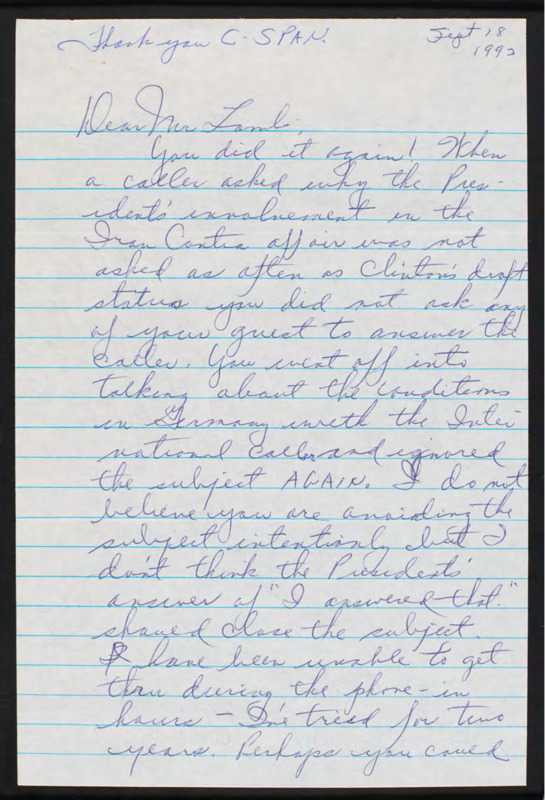 Thank you C-SPAN.
Sept 18
1992
Dear Mr Lamb,
You did it again! When
a caller asked why the Pres-
ident's involvement in the
Iran Contra affair was not
asked as often as Clinton's draft
status you did not ask any
of your guest to answer the
caller. You went off into
talking about the conditions
in Germany with the Inter-
national Caller and ignored
the subject AGAIN. I do not
believe you are avoiding the
subject intentionly but I
don't think the Presidents'
answer of "I answered that."
should close the subject.
I have been unable to get
thru during the phone-in
hours - I've tried for two
years. Perhaps you could